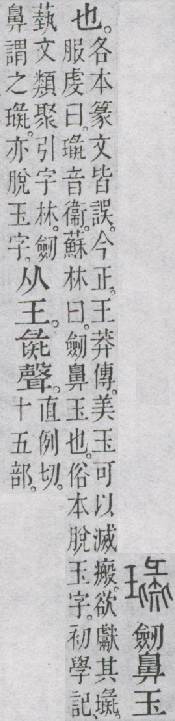 璏 劒鼻玉
也。各本篆文皆誤。今正。王莽傳。美玉可以滅瘢。欲獻其璏。
服虔曰。璏音衞。蘇林曰。劒鼻玉也。俗本脫玉字。初學記
藝文類聚引字林。劒
鼻謂之璏。亦脫玉字。
从王。彘聲。
直例切。
十五部。